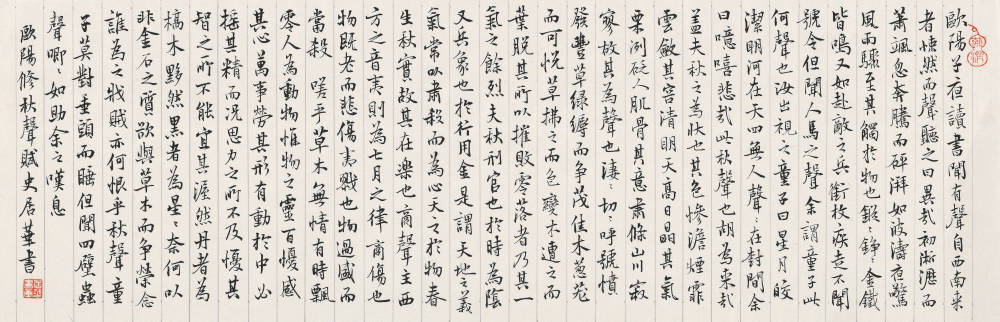 歐陽子夜讀書聞有聲自西南来
者悚然而聽之曰異哉初淅瀝而
蕭颯忽奔騰而砰湃如波濤夜驚
風雨驟至其觸於物也鏦〻錚〻金鐵
皆鳴又如赴敵之兵銜枚疾走不聞
號令但聞人馬之聲余謂童子此
何聲也汝出視之童子曰星月皎
潔明河在天四無人聲〻在樹間余
曰噫嘻悲哉此秋聲也胡為来哉
蓋夫秋之為狀也其色惨澹煙霏
雲斂其容清明天高日晶其氣
栗洌砭人肌骨其意蕭條山川寂
寥故其為聲也淒〻切〻呼號憤
發豐草綠縟而争茂佳木葱蘢
而可悦草拂之而色變木遭之而
葉脱其所以摧敗零落者乃其一
氣之餘烈夫秋刑官也於時為陰
又兵象也於行用金是謂天地之義
氣常以肅殺而為心天之於物春
生秋實故其在樂也商聲主西
方之音夷則為七月之律商傷也
物既老而悲傷夷戮也物過盛而
當殺嗟乎草木無情有時飄
零人為動物惟物之靈百憂感
其心萬事勞其形有動於中必
摇其精而况思力之所不及憂其
智之所不能宜其渥然丹者為
槁木黟然黑者為星〻奈何以
非金石之質欲與草木而争榮念
誰為之戕賊亦何恨乎秋聲童
子莫對垂頭而睡但聞四壁蟲
聲唧〻如助余之嘆息
歐陽修秋聲賦史居華書